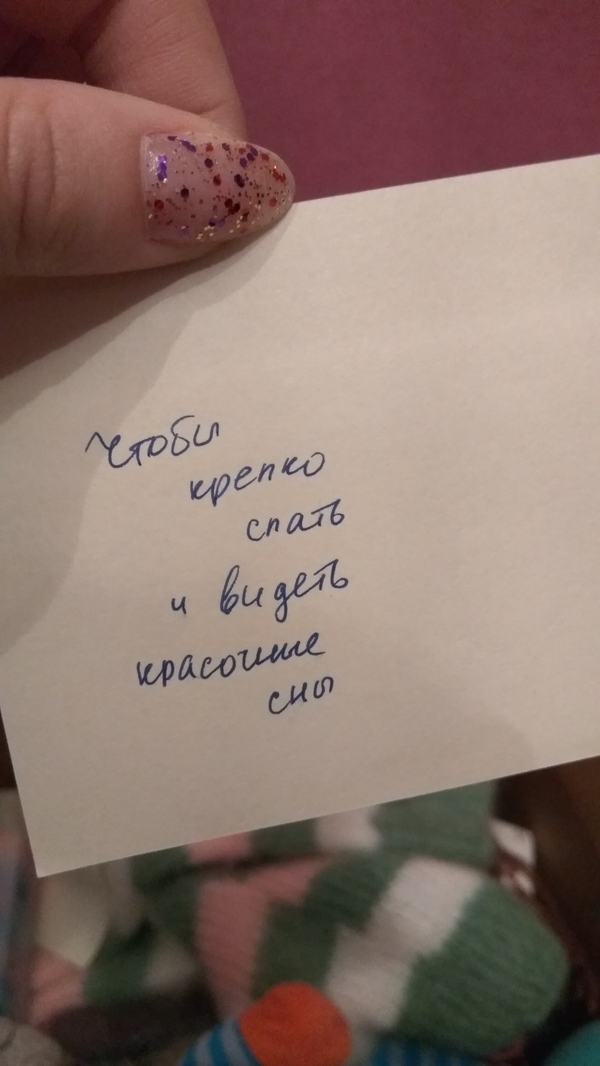 Чтобы
крепко
спать
и видеть
красочные
сны